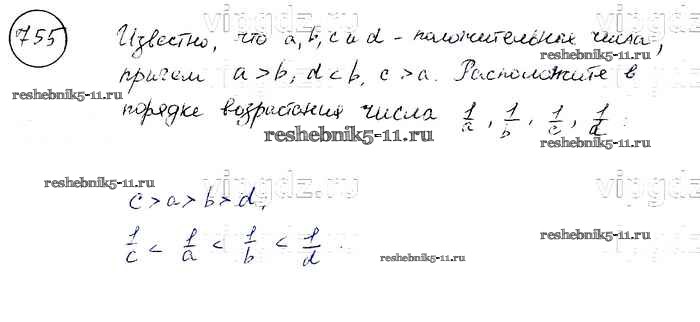 755 Известно, что a, b, c и d - положительные числа,
причем a > b, d < b, c > a. Расположите в
порядке возрастания числа 1/a, 1/b, 1/c, 1/d.
c > a > b > d,
1/c < 1/a < 1/b < 1/d.
vipgdz.ru
reshebnik5-11.ru
reshebnik5-11.ru
reshebnik5-11.ru
reshebnik5-11.ru
vipgdz.ru
reshebnik5-11.ru
reshebnik5-11.ru
reshebnik5-11.ru
vipgdz.ru